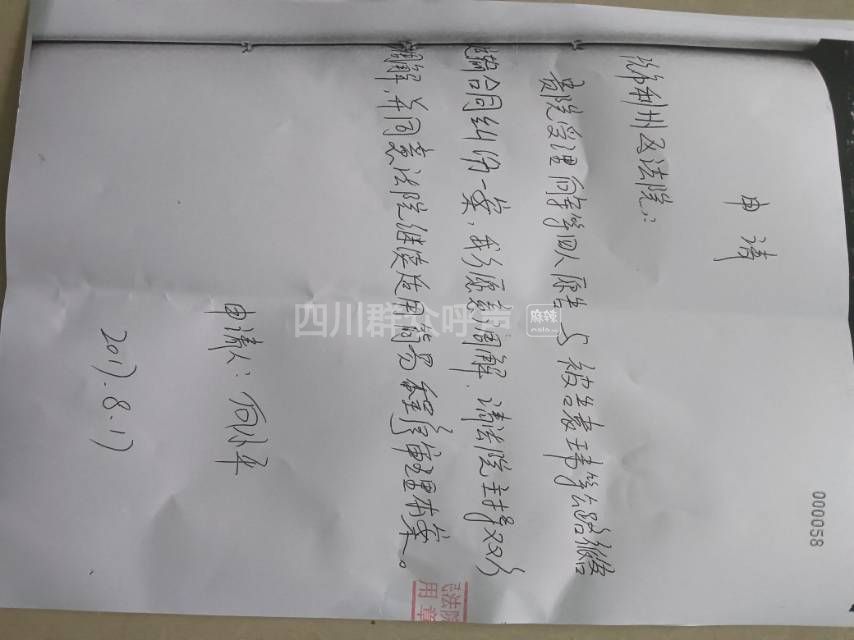 申请
利州区法院:
贵院受理何 等四人原告与被告袁玮等公路
合同纠纷一案,我方愿意调解.请法院主持双方
调解,并同意法院继续适用简易程序审理本案。
申请人:何小平
2017.8.17
000058
法院
用章
四川群众呼声
麻辣